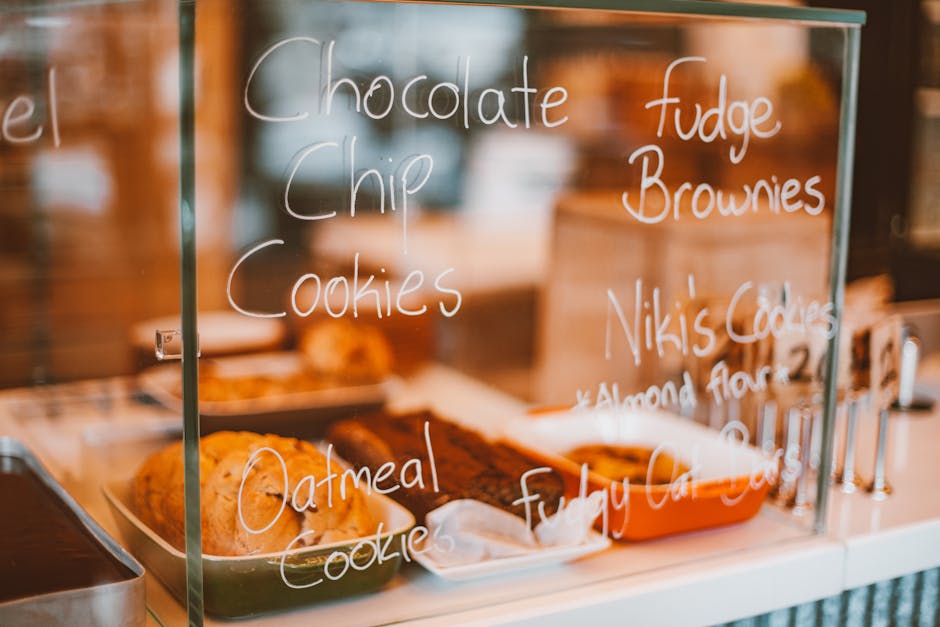 el
Chocolate
Chip
Cookies
Oatmeal
Cookies
Fudge
Brownies
Niki's Cookies
*Almond flour*
fudgy Oat Bars